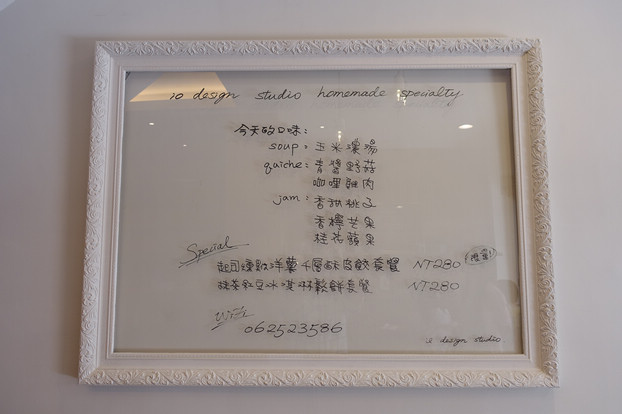 io design studio homemade specialty
今天的口味：
soup：玉米濃湯
quiche：青醬野菇
咖哩雞肉
jam：香甜桃子
香檸芒果
桂花蘋果
Special
起司燻鮭洋薯千層酥皮餃套餐 NT280
抹茶紅豆冰淇淋鬆餅套餐 NT280
Wifi
062523586
io design studio.